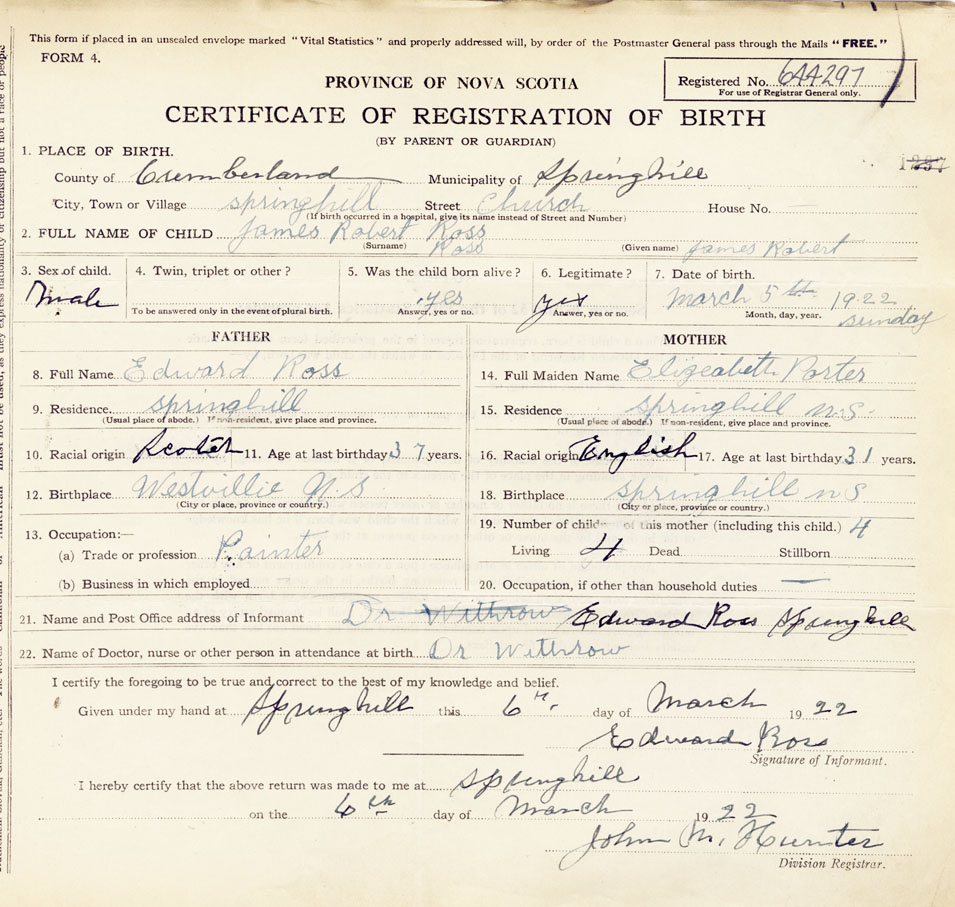 This form if placed in an unsealed envelope marked "Vital Statistics" and properly addressed will, by order of the Postmaster General pass through the Mails "FREE."
FORM 4.
PROVINCE OF NOVA SCOTIA
Registered No. 644297
For use of Registrar General only.
CERTIFICATE OF REGISTRATION OF BIRTH
(BY PARENT OR GUARDIAN)
1. PLACE OF BIRTH.
County of Cumberland Municipality of Springhill
City, Town or Village springhill Street Church House No.
(If birth occurred in a hospital, give its name instead of Street and Number)
2. FULL NAME OF CHILD James Robert Ross
(Surname) Ross (Given name) James Robert
3. Sex of child. 4. Twin, triplet or other? 5. Was the child born alive? 6. Legitimate? 7. Date of birth.
Male yes yes March 5th 1922
To be answered only in the event of plural birth. Answer, yes or no. Answer, yes or no. Month, day, year. sunday
FATHER MOTHER
8. Full Name Edward Ross 14. Full Maiden Name Elizeabeth Porter
9. Residence. springhill 15. Residence springhill n.s.
(Usual place of abode.) If non-resident, give place and province. (Usual place of abode.) If non-resident, give place and province.
10. Racial origin Scotch 11. Age at last birthday 37 years. 16. Racial origin English 17. Age at last birthday 31 years.
12. Birthplace Westvillie N.S 18. Birthplace springhill n S
(City or place, province or country.) (City or place, province or country.)
13. Occupation:— 19. Number of child of this mother (including this child.) 4
(a) Trade or profession Painter Living 4 Dead Stillborn
(b) Business in which employed 20. Occupation, if other than household duties —
21. Name and Post Office address of Informant Dr Withrow Edward Ross Springhill
22. Name of Doctor, nurse or other person in attendance at birth Dr Withrow
I certify the foregoing to be true and correct to the best of my knowledge and belief.
Given under my hand at Springhill this 6th day of March 1922
Edward Ross
Signature of Informant.
I hereby certify that the above return was made to me at Springhill
on the 6th day of March 1922
John M. Hunter
Division Registrar.